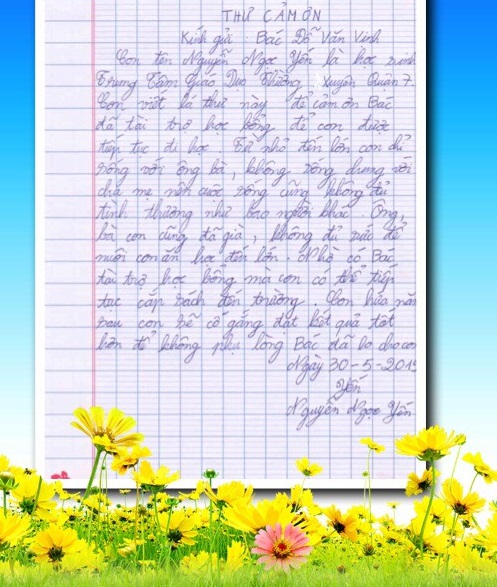 THƯ CẢM ƠN
Kính gửi : Bác Đỗ Văn Vinh
Con tên Nguyễn Ngọc Yến là học sinh
Trung Tâm Giáo Dục Thường Xuyên Quận 7.
Con viết lá thư này để cảm ơn Bác
đã tài trợ học bổng để con được
tiếp tục đi học. Từ nhỏ đến lớn con chỉ
sống với ông bà, không sống chung với
cha mẹ nên cuộc sống cũng không đủ
tình thương như bao người khác. Ông,
bà con cũng đã già, không đủ sức để
nuôi con ăn học đến lớn. Nhờ có Bác
tài trợ học bổng mà con có thể tiếp
tục cắp sách đến trường. Con hứa năm
sau con sẽ cố gắng đạt kết quả tốt
hơn để không phụ lòng Bác đã lo cho con
Ngày 30-5-2019
Yến
Nguyễn Ngọc Yến